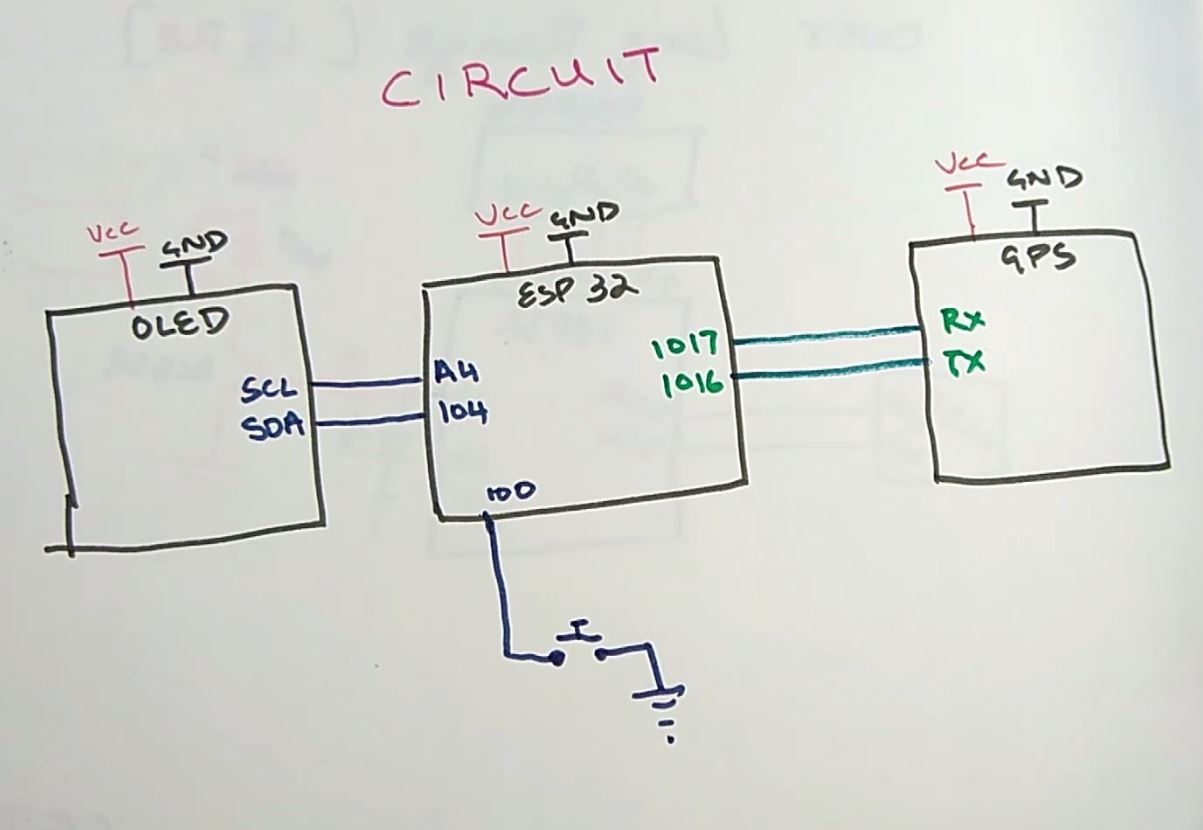 CIRCUIT
VCC GND
OLED
SCL
SDA
VCC GND
ESP 32
A4
IO4
IO17
IO16
IO0
VCC GND
GPS
RX
TX